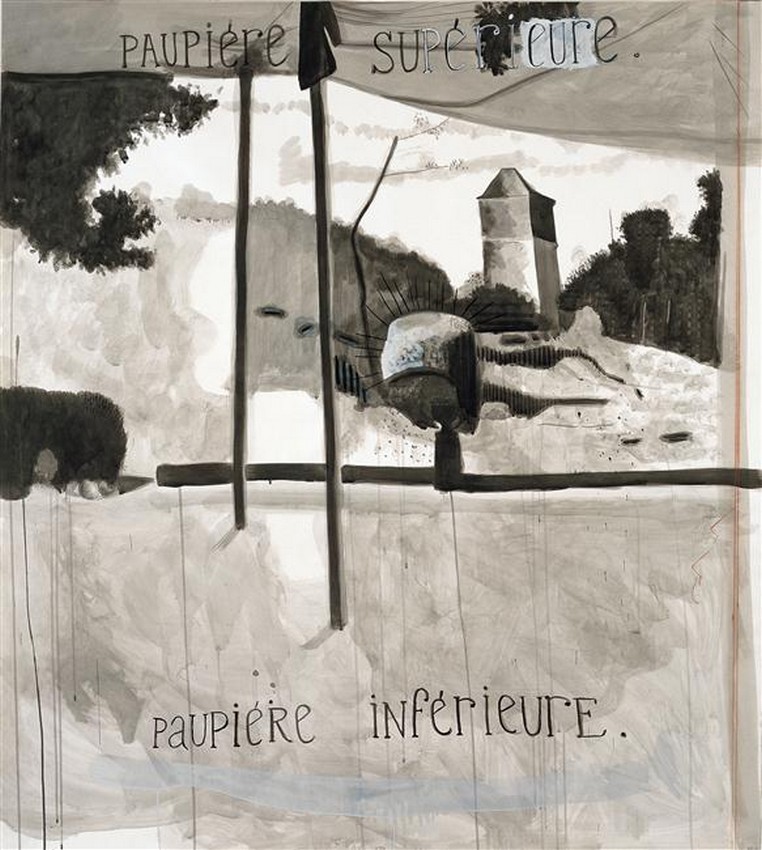 PAUPiére SUPérieure.
PAUPiére iNférieurE.